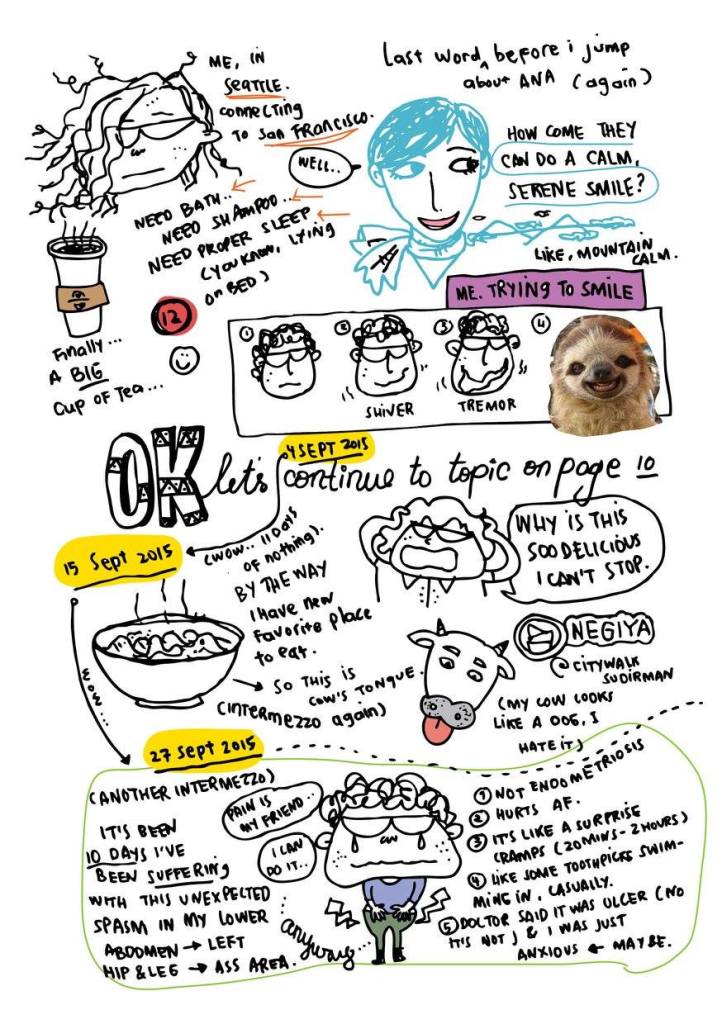 ME, IN
SEATTLE.
CONNECTING
TO SAN FRANCISCO.
NEED BATH..
NEED SHAMPOO..
NEED PROPER SLEEP
(YOU KNOW, LYING
ON BED)
Finally...
A BIG
CUP OF TEA...
12
Last word ^ before i jump
about ANA (again)
WELL..
HOW COME THEY
CAN DO A CALM,
SERENE SMILE?
LIKE, MOUNTAIN
CALM.
ME. TRYING TO SMILE
1
2
3
4
SHIVER
TREMOR
4 SEPT 2015
OK let's continue to topic on page 10
15 Sept 2015
(WOW.. 11 DAYS
OF NOTHING).
BY THE WAY
I HAVE NEW
FAVORITE PLACE
TO EAT.
WHY IS THIS
SOO DELICIOUS
I CAN'T STOP.
SO THIS IS
COW'S TONGUE.
(INTERMEZZO AGAIN)
NEGIYA
@CITYWALK
SUDIRMAN
(MY COW LOOKS
LIKE A DOG, I
HATE IT)
WOW...
27 SEPT 2015
(ANOTHER INTERMEZZO)
IT'S BEEN
10 DAYS I'VE
BEEN SUFFERING
WITH THIS UNEXPECTED
SPASM IN MY LOWER
ABDOMEN → LEFT
HIP & LEG → ASS AREA.
PAIN IS
MY FRIEND..
I CAN
DO IT..
anyway...
1 NOT ENDOMETRIOSIS
2 HURTS AF.
3 IT'S LIKE A SURPRISE
CRAMPS (20 MINS - 2 HOURS)
4 LIKE SOME TOOTHPICKS SWIM-
MING IN, CASUALLY.
5 DOCTOR SAID IT WAS ULCER (NO
IT'S NOT) & I WAS JUST
ANXIOUS ← MAYBE.